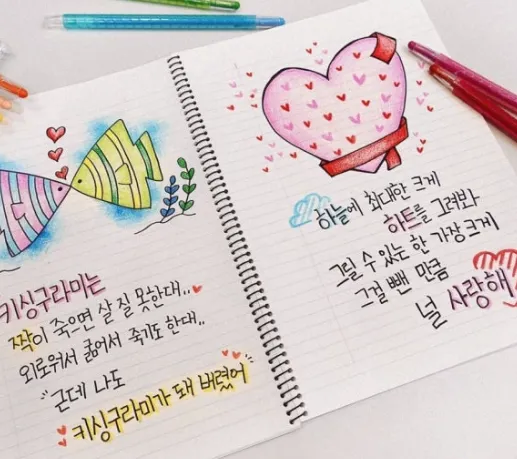 키싱구라미는
짝이 죽으면 살 질 못한대..
외로워서 굶어서 죽기도 한대..
"근데 나도
키싱구라미가 돼 버렸어"
하늘에 최대한 크게
하트를 그려봐
그릴 수 있는 한 가장 크게
그걸 뺀 만큼
널 사랑해